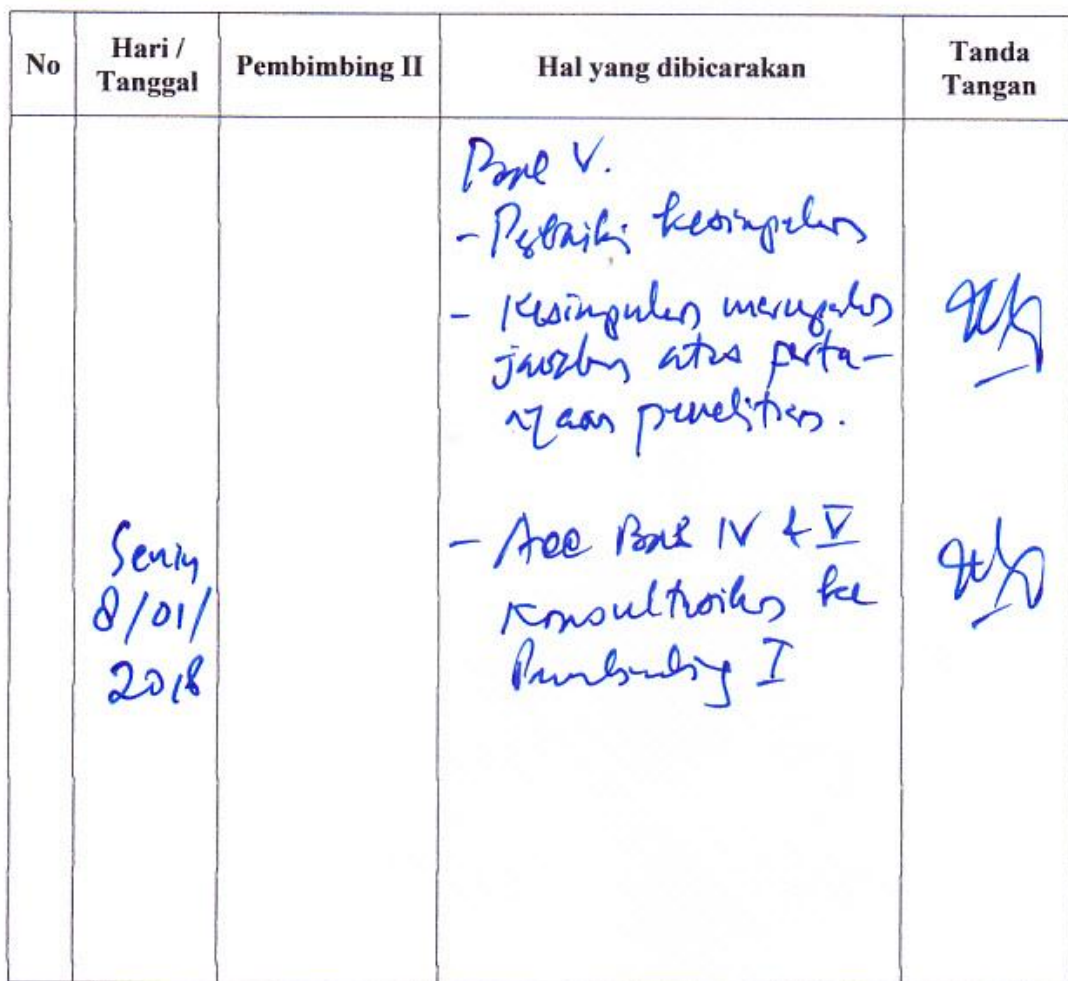 No
Hari /
Tanggal
Pembimbing II
Hal yang dibicarakan
Tanda
Tangan
Bab V.
- Perbaiki kesimpulan
- Kesimpulan merupakan
jawaban atas perta-
nyaan penelitian.
Senin
8/01/
2018
- Acc Bab IV & V
Konsultasikan ke
Pembimbing I